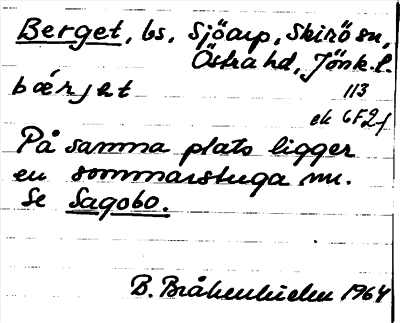 Berget, bs, Sjöarp, Skirö sn,
Östra hd, Jönk.l.
bærjet 113
ek 6F2f
På samma plats ligger
en sommarstuga nu.
Se Sagobo.
B. Bråkenhielm 1964